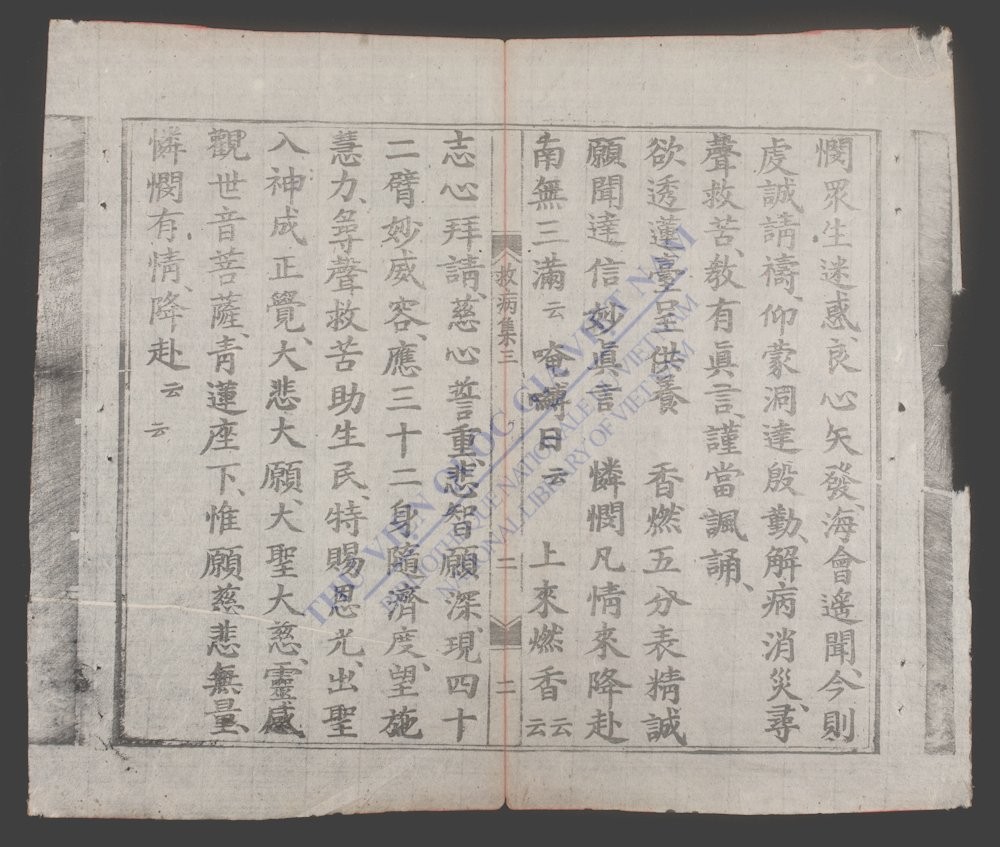 憫眾生迷惑、良心矢發、海會遙聞、今則
虔誠請禱、仰蒙洞達殷勤、解病消災、尋
聲救苦、敎有眞言、謹當諷誦、
欲透蓮臺呈供養　香燃五分表精誠
願聞達信妙眞言　憐憫凡情來降赴
南無三滿云　唵囀日云　上來燃香云云
救病集三　二　二
志心拜請、慈心誓重、悲智願深、現四十
二臂妙威容、應三十二身隨濟度、望施
慧力、尋聲救苦助生民、特賜恩光、出聖
入神成正覺、大悲大願、大聖大慈、靈感
觀世音菩薩、青蓮座下、惟願慈悲無量、
憐憫有情、降赴云云
THƯ VIỆN QUỐC GIA VIỆT NAM
BIBLIOTHEQUE NATIONALE DU VIETNAM
NATIONAL LIBRARY OF VIETNAM